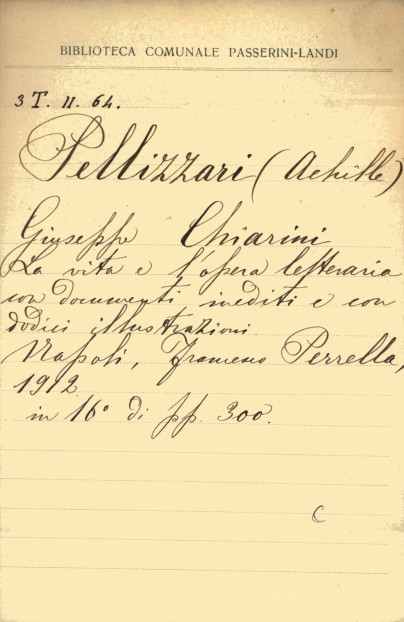 BIBLIOTECA COMUNALE PASSERINI-LANDI
3 T. II. 64.
Pellizzari (Achille)
Giuseppe Chiarini
La vita e l'opera letteraria
con documenti inediti e con
dodici illustrazioni
Napoli, Francesco Perrella,
1912
in 16° di pp. 300.
C